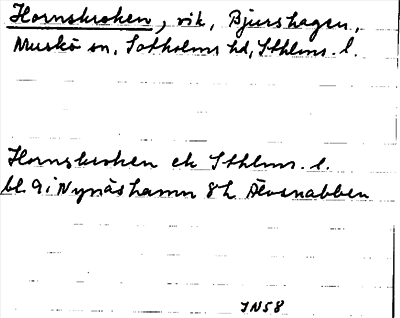 Hornskroken, vik, Bjurshagen,
Muskö sn, Sotholms hd, Sthlms. l.
Hornskroken ek Sthlms. l.
bl. 9 i Nynäshamn 8 h Älvsnabben
IN58